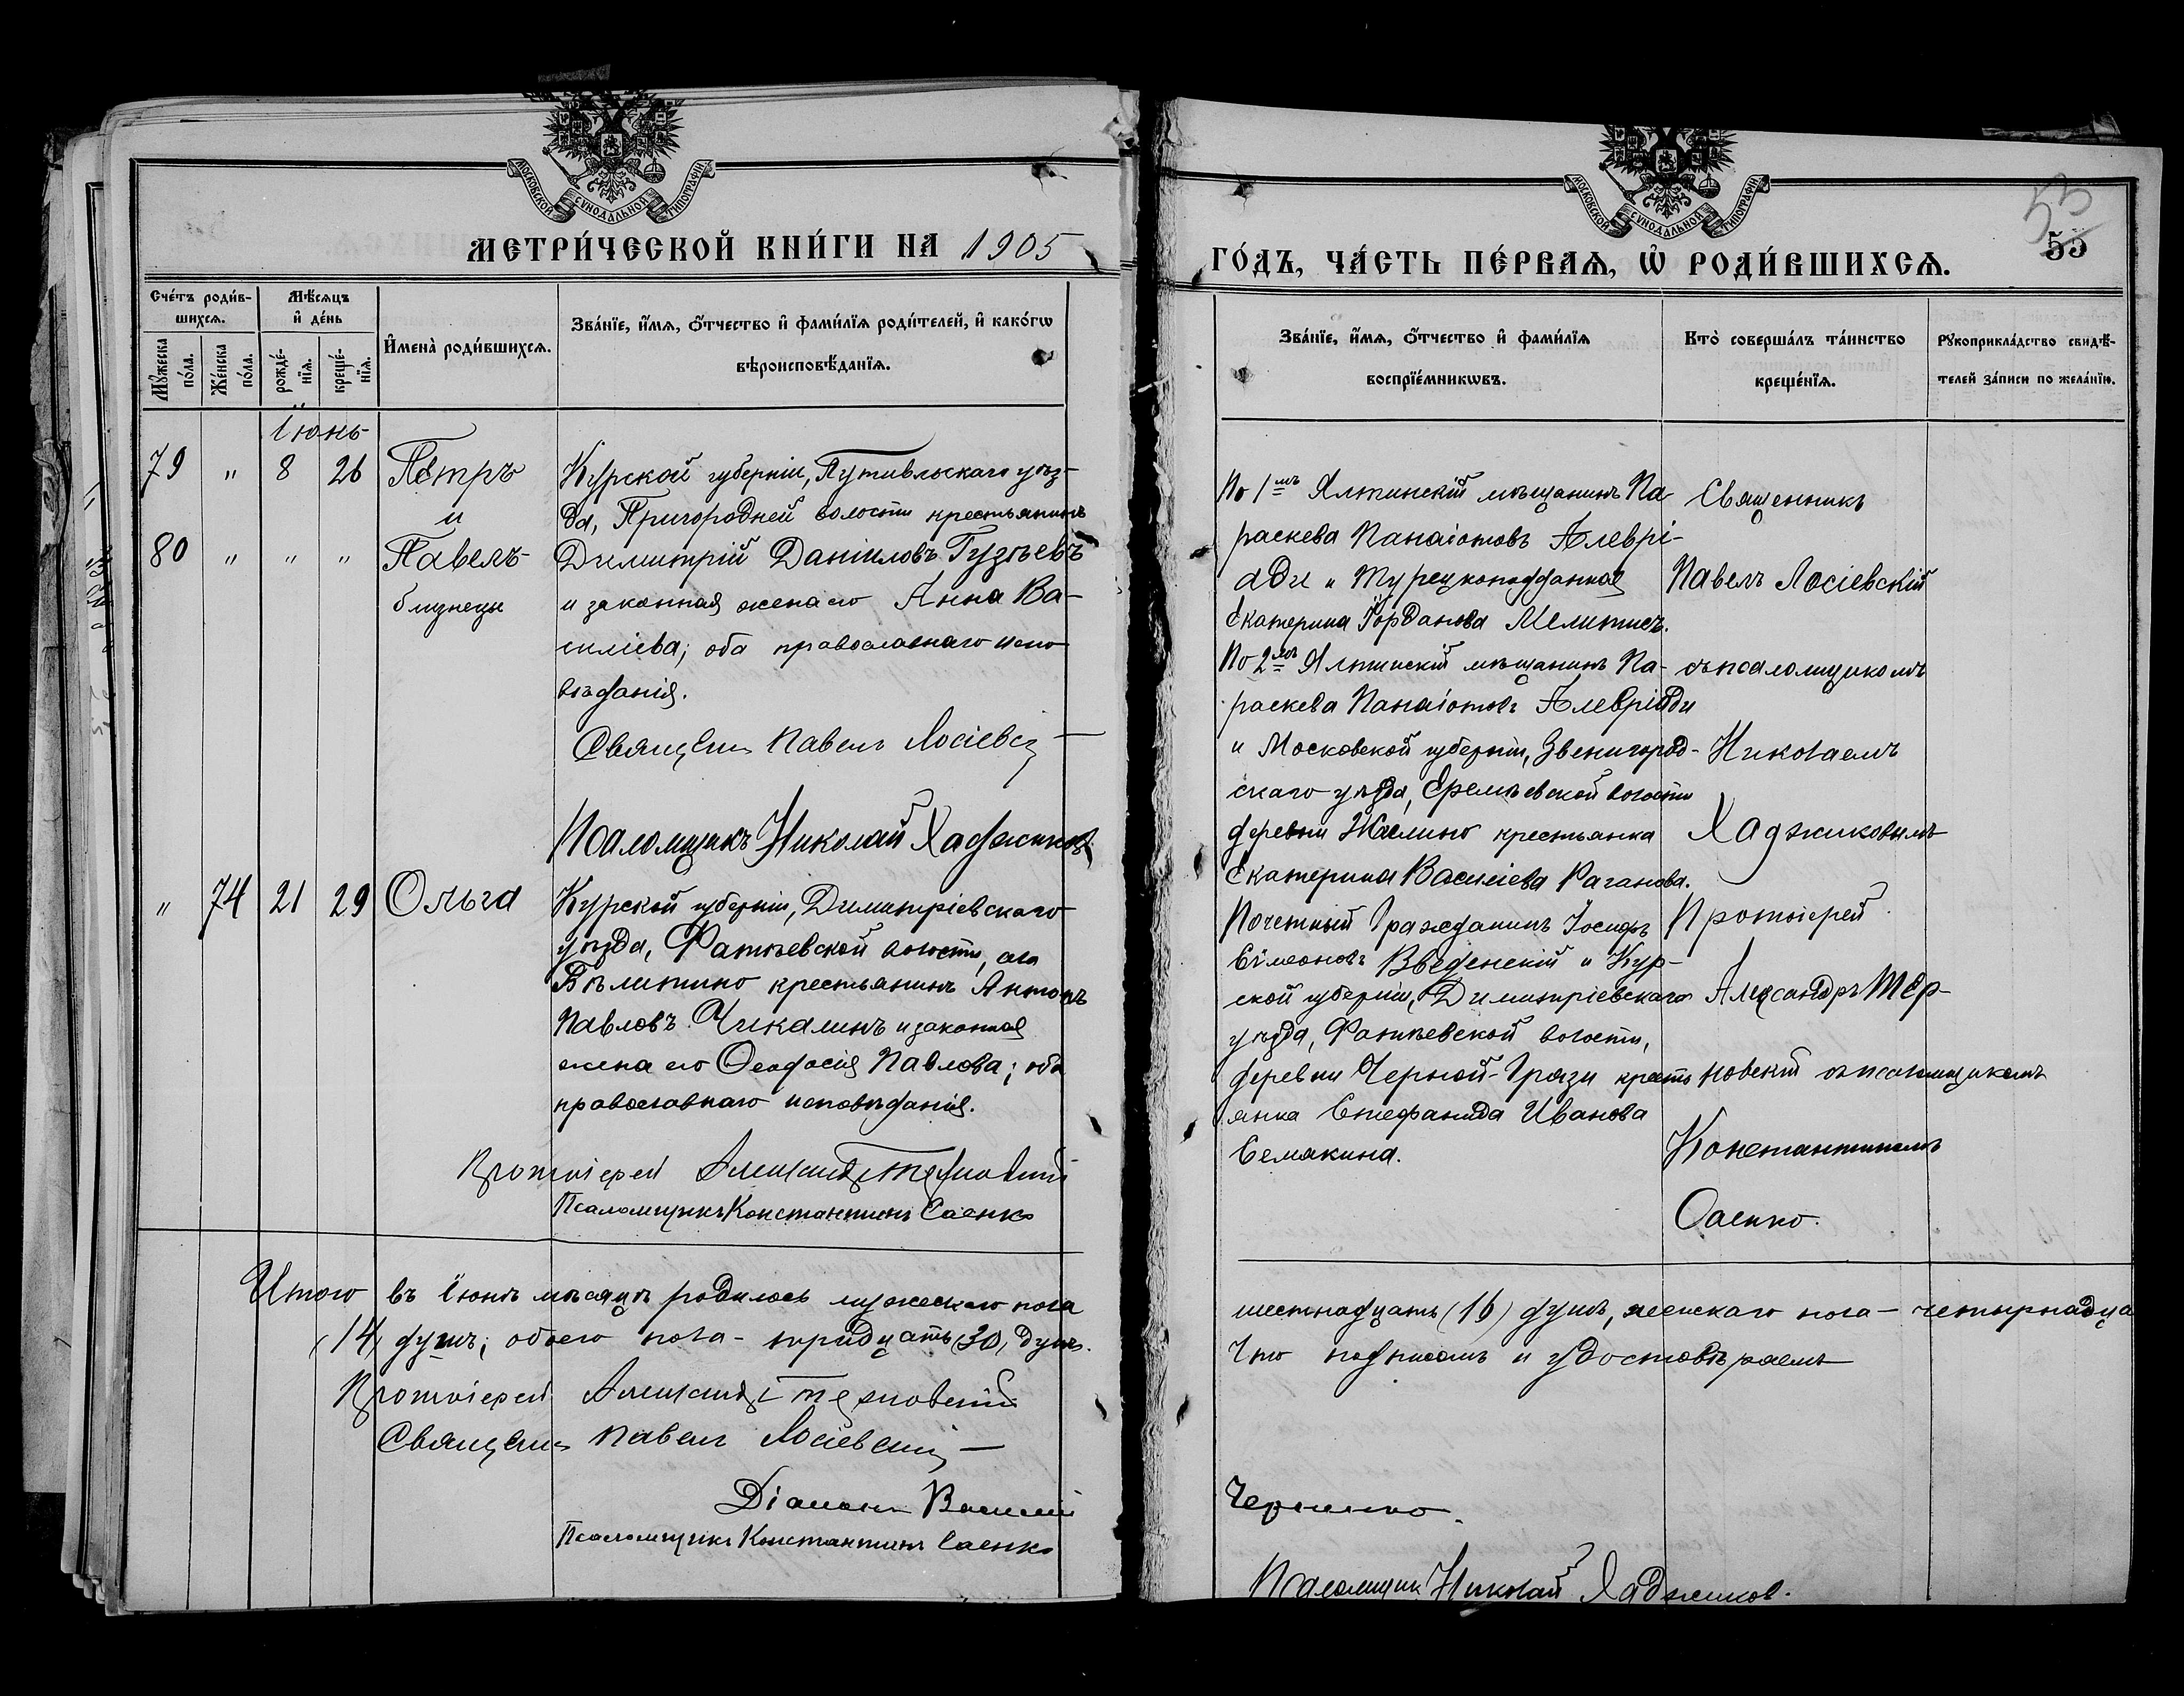 МОСКОВСКОЙ СѴНОДАЛЬНОЙ ТИПОГРАФІИ
МЕТРИ́ЧЕСКОЙ КНИ́ГИ НА 1905
Сче́тъ роди́в-
шихсѧ.
Мꙋ́жеска
по́ла.
Же́нска
по́ла.
Мѣ́сѧцъ
и҆ де́нь
рожде́-
нїѧ.
креще́-
нїѧ.
И҆мена̀ роди́вшихсѧ.
Зва́нїе, и҆́мѧ, ѻ҆́тчество и҆ фами́лїѧ роди́телей, и҆ како́гѡ
вѣроисповѣ́данїѧ.
Іюнь
79 " 8 26 Петръ
и
80 " " " Павелъ
близнецы
Курской губерніи, Путивльскаго уѣз-
да, Пригородней волости крестьянинъ
Димитрій Даніиловъ Гузѣевъ
и законная жена его Анна Ва-
силіева; оба православнаго испо-
вѣданія.
Священ. Павелъ Лосіевск
Псаломщикъ Николай Хаджиковъ
" 74 21 29 Ольга
Курской губерніи, Димитріевскаго
уѣзда, Фатѣевской волости, села
Бѣлитино крестьянинъ Антонъ
Павловъ Чикалинъ и законная
жена его Ѳеодосія Павлова; оба
православнаго исповѣданія.
Протоіерей Александръ Терновскій
Псаломщикъ Константинъ Саенко
Итого въ Іюнѣ мѣсяцѣ родилось мужескаго пола
(14) душъ; обоего пола - тридцать (30) душъ.
Протоіерей Александръ Терновскій
Священ. Павелъ Лосіевскій
Діаконъ Василій
Псаломщикъ Константинъ Саенко
МОСКОВСКОЙ СѴНОДАЛЬНОЙ ТИПОГРАФІИ
53
55
ГО́ДЪ, ЧА́СТЬ ПЕ́РВАѦ, Ѡ҆ РОДИ́ВШИХСѦ.
Зва́нїе, и҆́мѧ, ѻ҆́тчество и҆ фами́лїѧ
воспрїе́мникѡвъ.
Кто̀ соверша́лъ та́инство
креще́нїѧ.
Рꙋкоприкла́дство свидѣ́-
телей за́писи по жела́нїю.
По 1мъ Ялтинскій мѣщанинъ Па-
раскева Панаіотовъ Алеврі-
ади и Турецкоподданная
Екатерина Іорданова Мелитисъ.
По 2мъ Ялтинскій мѣщанинъ Па-
раскева Панаіотовъ Алевріади
и Московской губерніи, Звенигород-
скаго уѣзда, Еремѣевской волости
деревни Жилино крестьянка
Екатерина Василіева Раганова.
Священникъ
Павелъ Лосіевскій
съ псаломщикомъ
Николаемъ
Хаджиковымъ
Почетный Гражданинъ Іосифъ
Симеоновъ Введенскій и Кур-
ской губерніи, Димитріевскаго
уѣзда, Фатѣевской волости,
деревни Черной-Грязи кресть
янка Стефанида Иванова
Семакина.
Протоіерей
Александръ Тер-
новскій съ псаломщикомъ
Константиномъ
Саенко.
шестнадцать (16) душъ, женскаго пола - четырнадца
Что подписомъ и удостовѣряемъ
Псаломщик Николай Хаджиков.